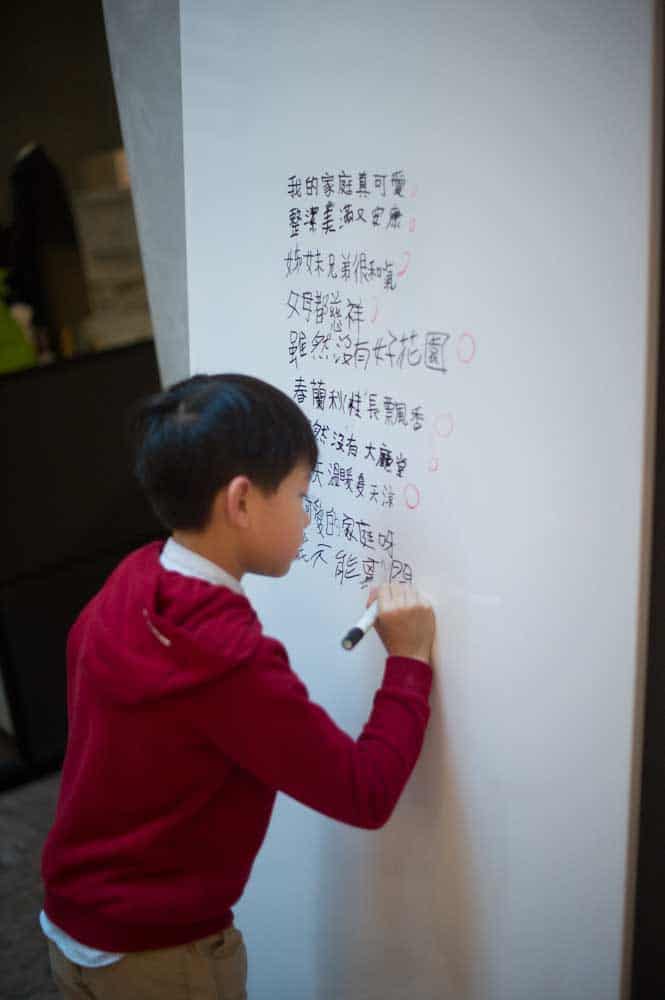 我的家庭真可愛
整潔美滿又安康
姊妹兄弟很和氣
父母都慈祥
雖然沒有好花園
春蘭秋桂長飄香
然沒有大廳堂
天溫暖夏天涼
可愛的家庭呀
不能